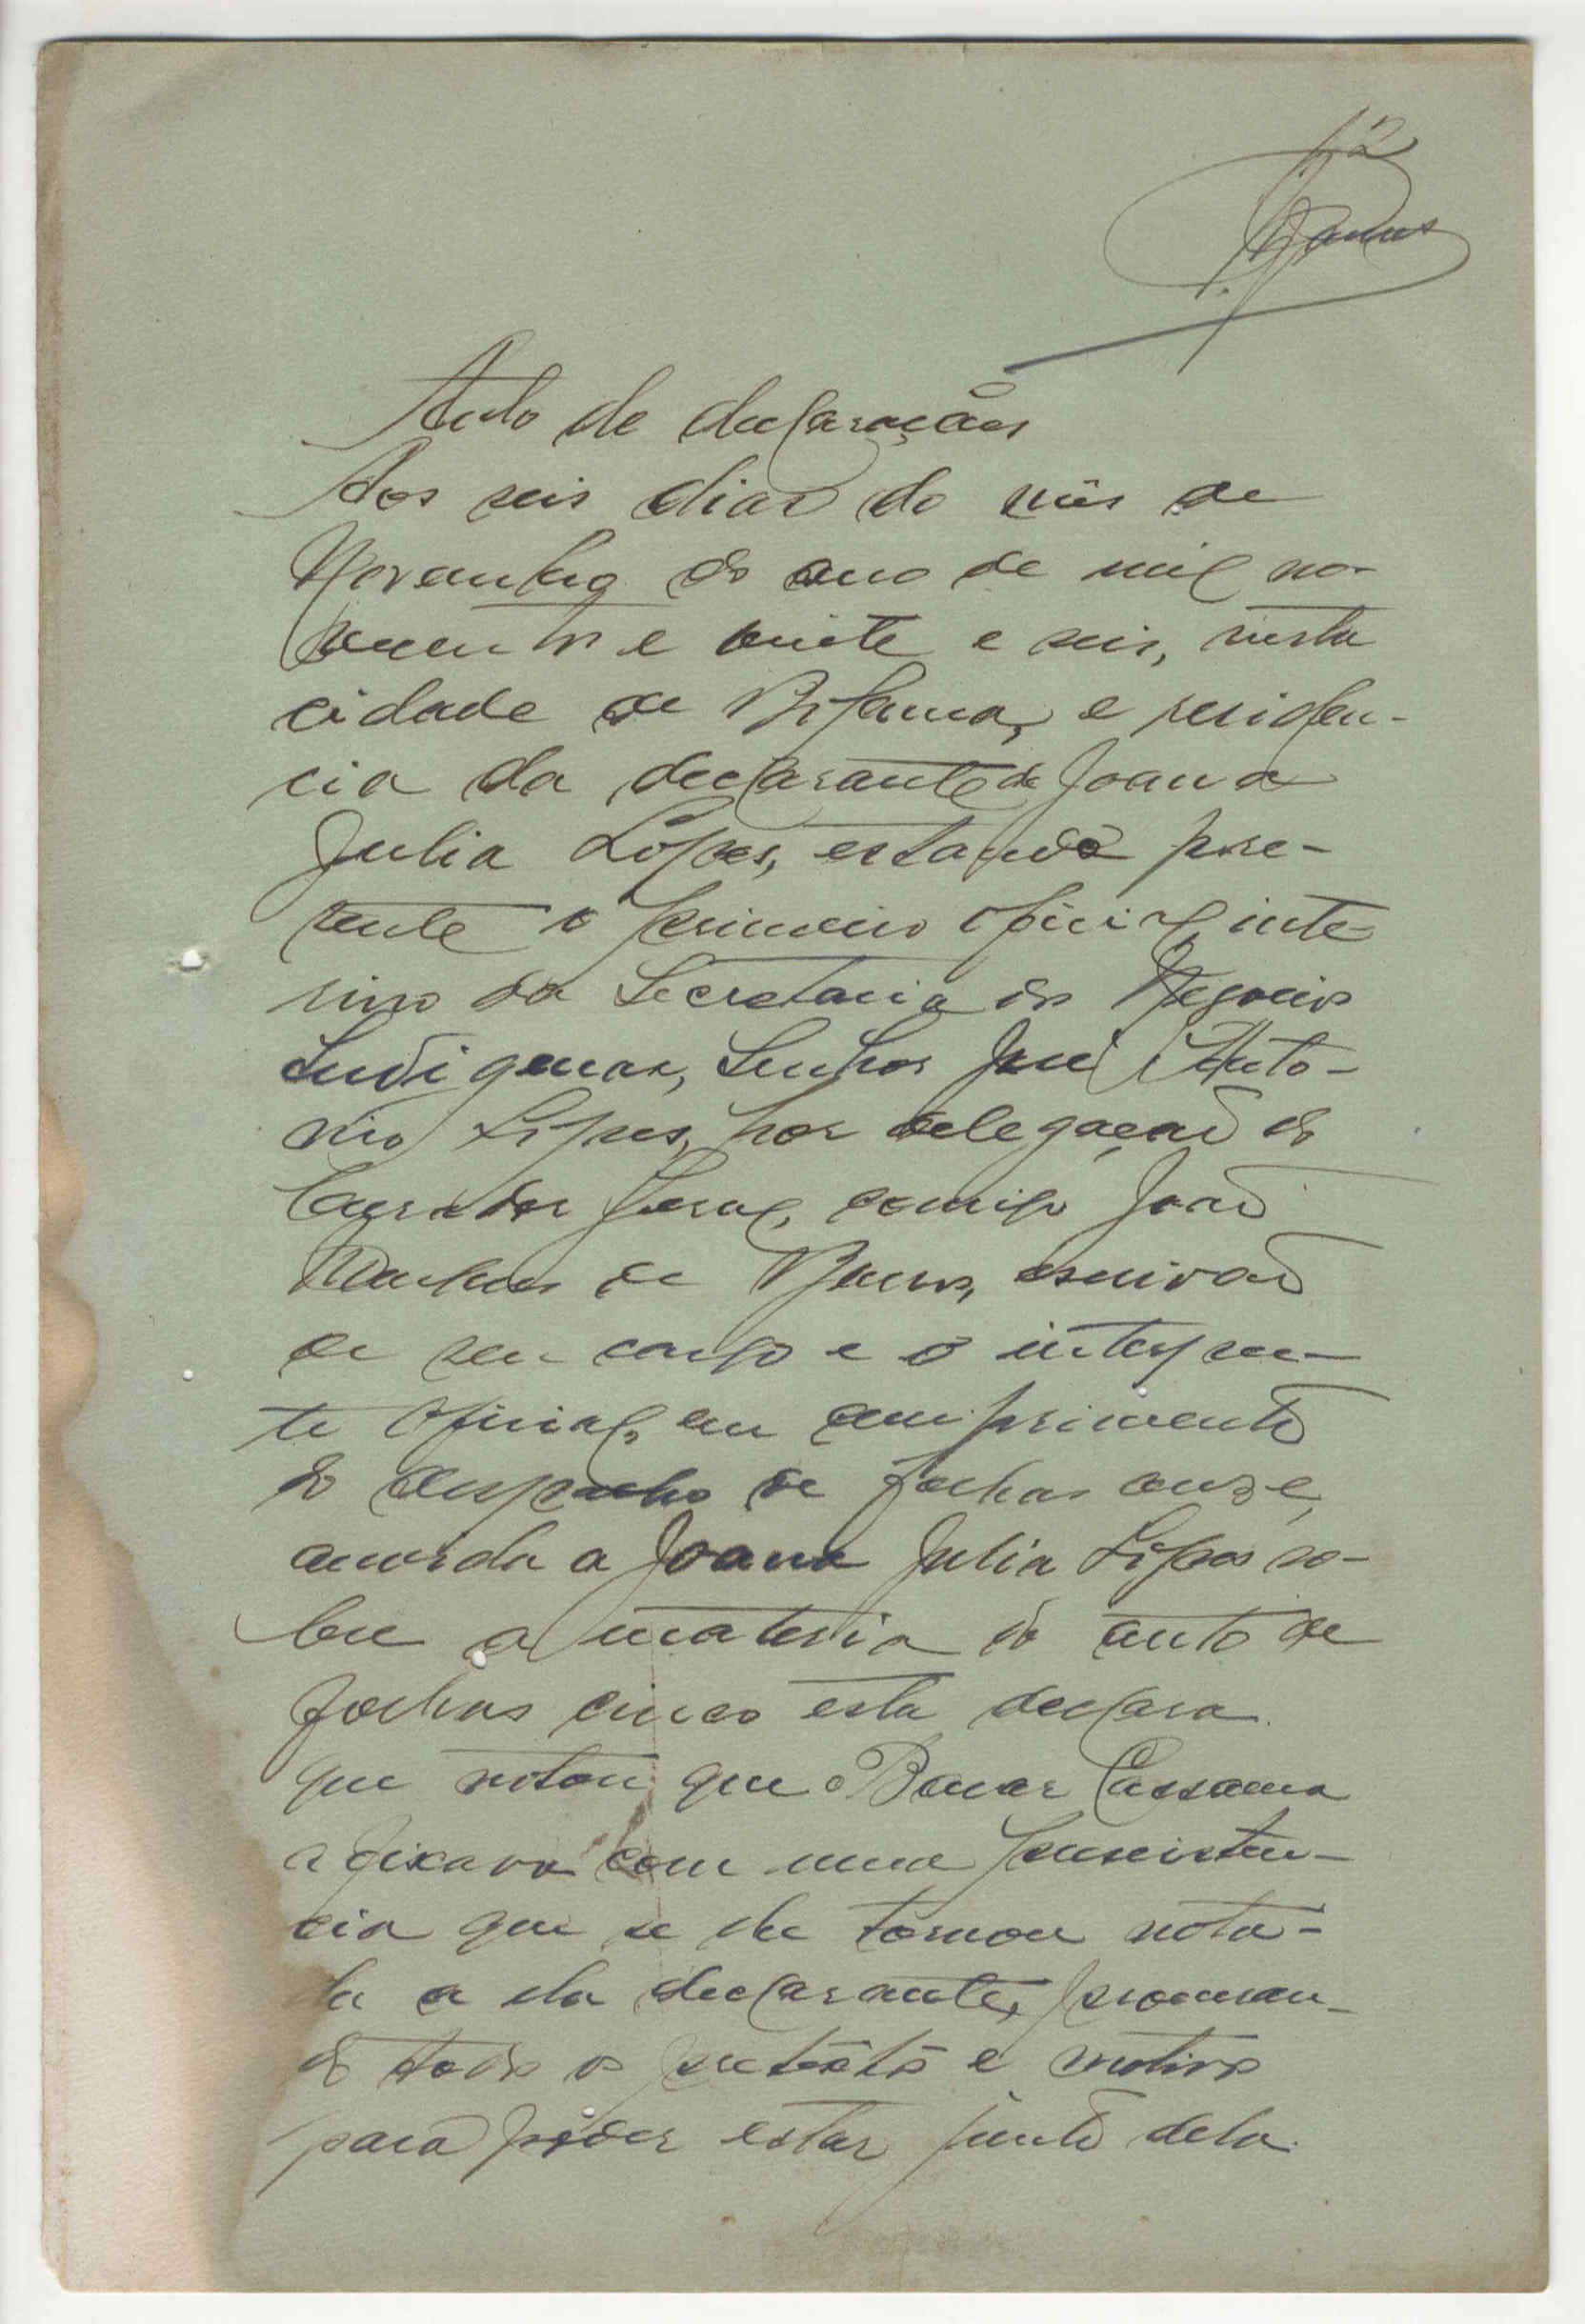 12
Auto de declarações
Aos seis dias do mês de
Novembro do ano de mil no-
vecentos e vinte e seis, nesta
cidade de Bolama, e residen-
cia da declarante de Joana
Julia Lopes, estando pre-
sente o primeiro oficial inte-
rino da Secretaria dos Negocios
Indigenas, Senhor José Anto-
nio Lopes, por delegação do
Curador Geral, comigo João
de Barros, escrivão
de seu cargo e o interpre-
te oficial, em cumprimento
do despacho de folhas onze,
ouvida a Joana Julia Lopes so-
bre a materia do auto de
folhas cinco esta declara
que notou que Bacar Cassama
a fixava com uma persisten-
cia que se lhe tornou nota-
da a ela declarante, procuran-
do todos os pretextos e motivos
para poder estar junto dela.